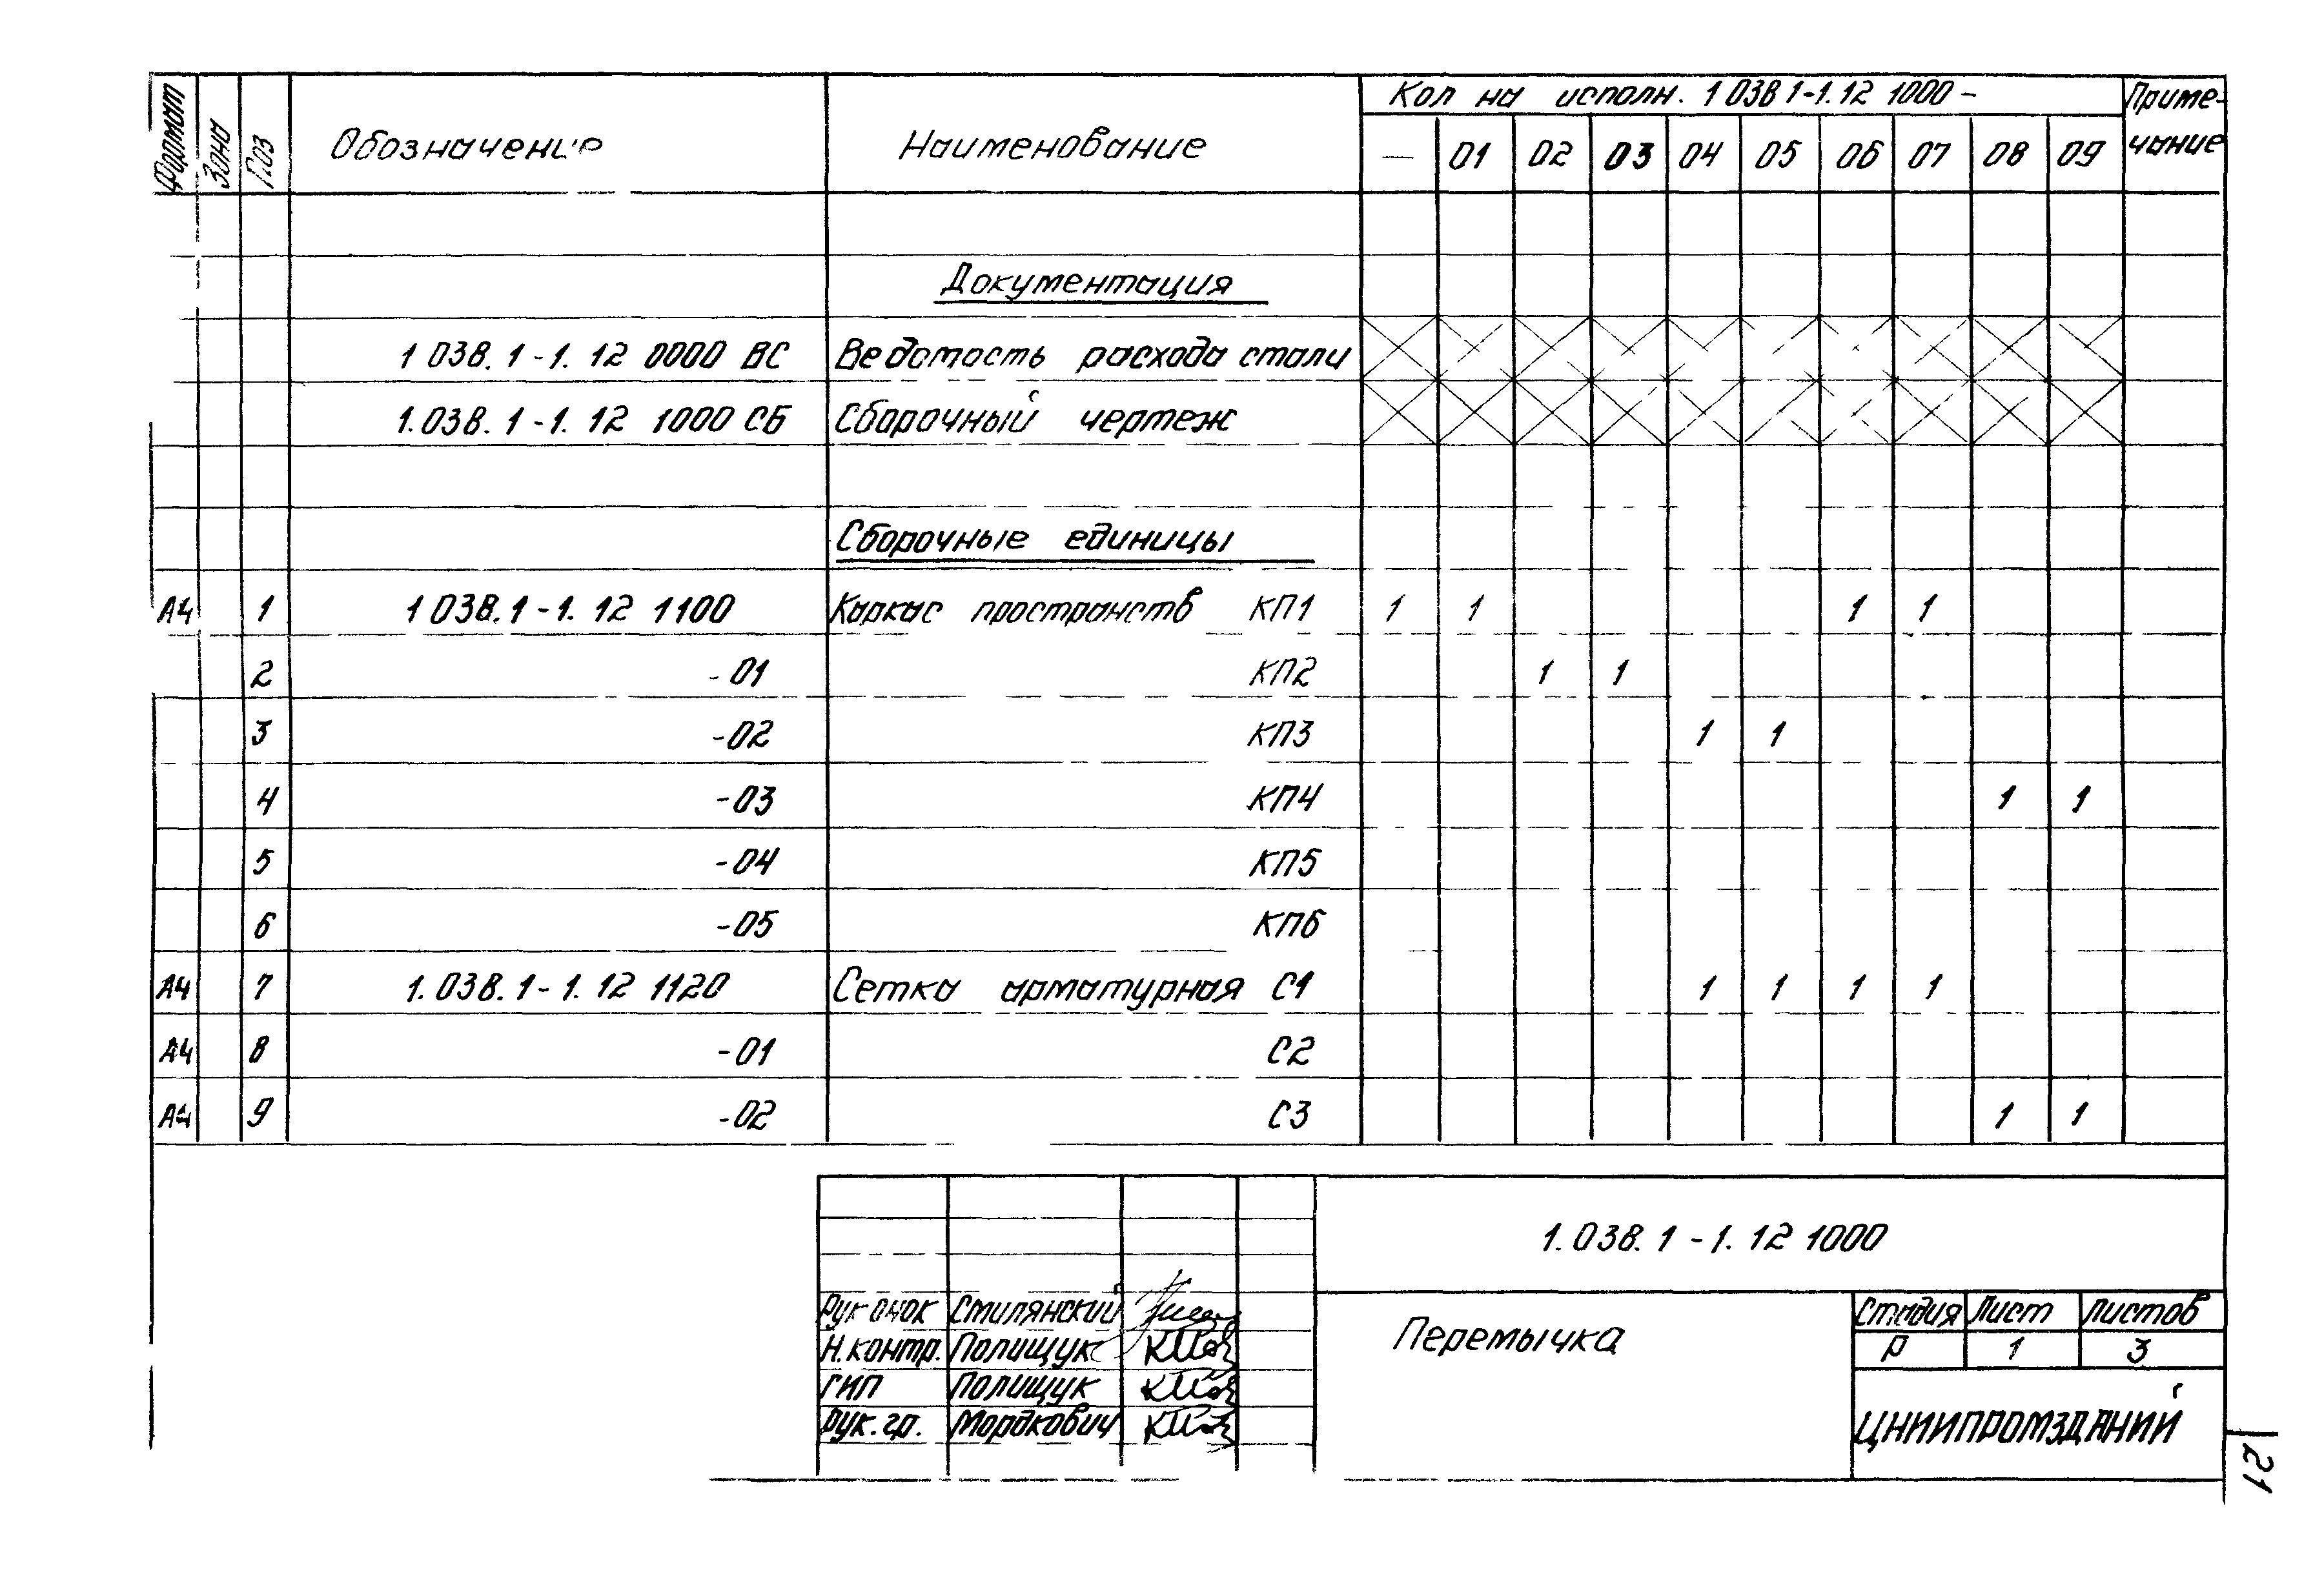 Формат Зона Поз Обозначение Наименование Кол на исполн. 1 038 1-1. 12 1000 - Приме-
чание
— 01 02 03 04 05 06 07 08 09
Документация
1 038. 1 - 1. 12 0000 ВС Ведомость расхода стали
1. 038. 1 - 1. 12 1000 СБ Сборочный чертеж
Сборочные единицы
А4 1 1 038. 1 - 1. 12 1100 Каркас пространств КП1 1 1 1 1
2 - 01 КП2 1 1
3 - 02 КП3 1 1
4 - 03 КП4 1 1
5 - 04 КП5
6 - 05 КП6
А4 7 1. 038. 1 - 1. 12 1120 Сетка арматурная С1 1 1 1 1
А4 8 - 01 С2
А4 9 - 02 С3 1 1
1. 038. 1 - 1. 12 1000
Рук Смилянский
Н. контр. Полищук
ГИП Полищук
Рук. гр. Мордкович
Перемычка
Стадия Лист Листов
Р 1 3
ЦНИИПРОМЗДАНИЙ
21